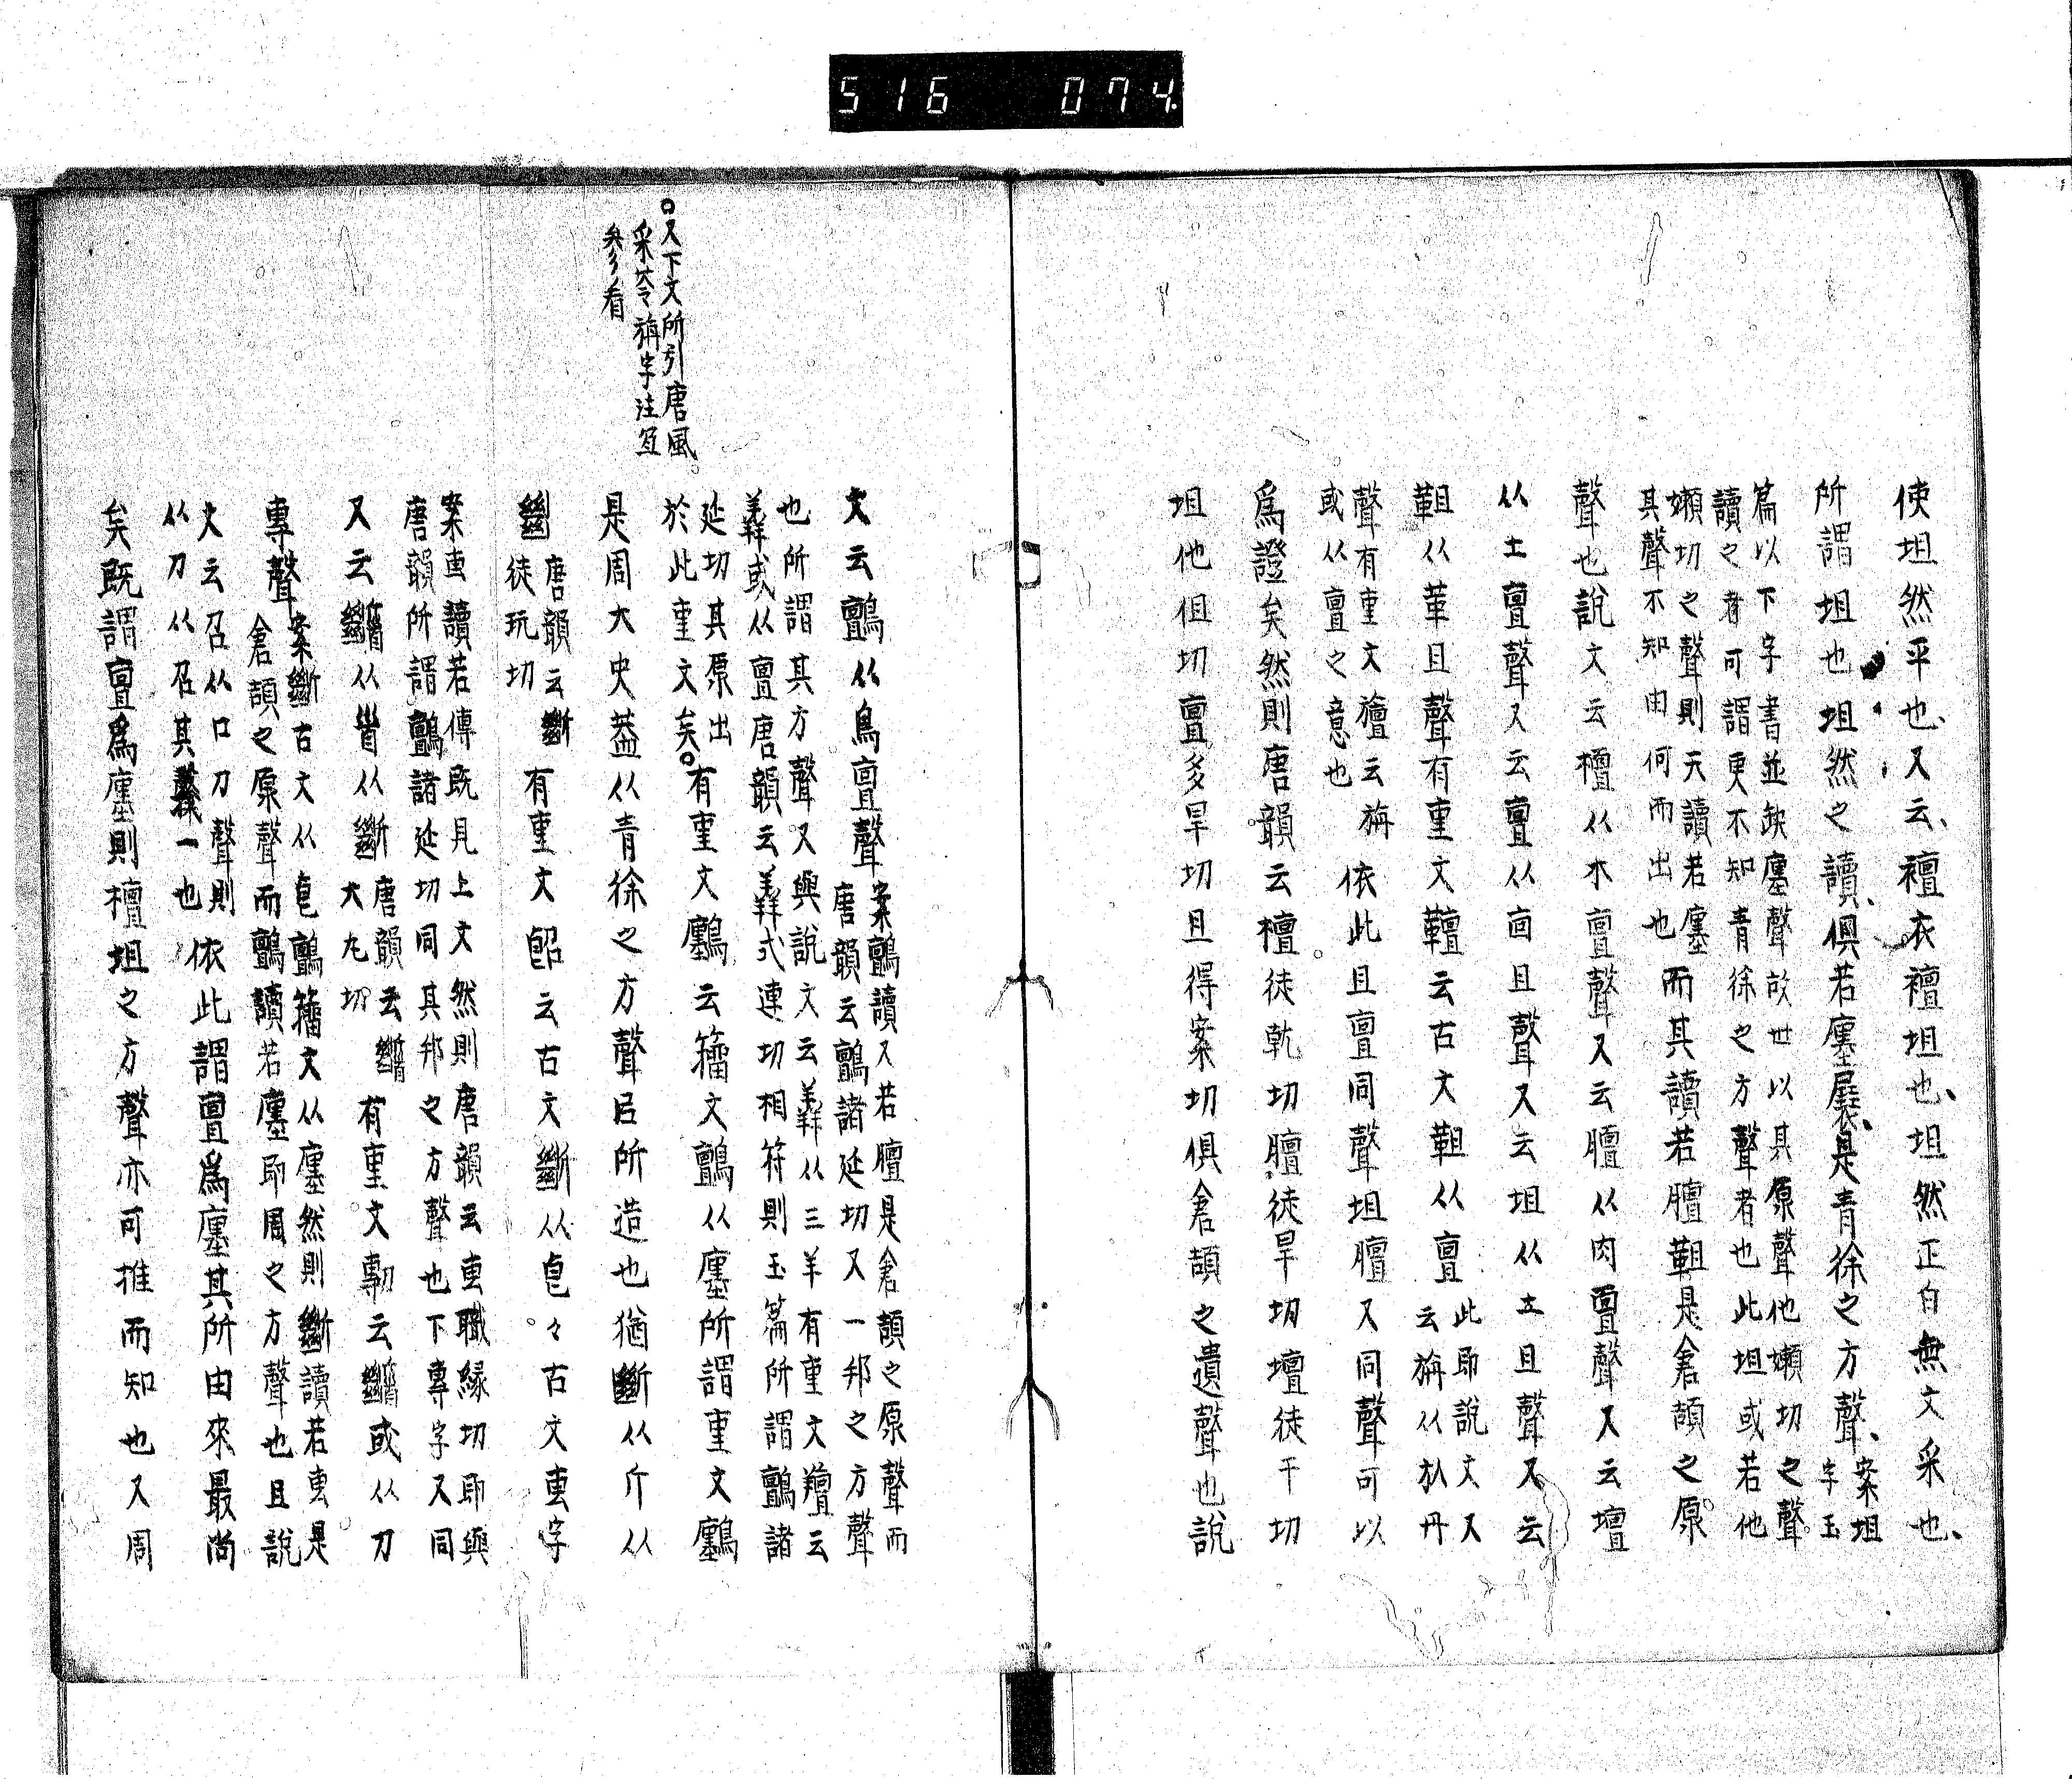 516 074.
使坦然平也又云襢衣襢坦也坦然正白無文采也
所謂坦也坦然之讀俱若㕓展是青徐之方聲案坦字玉
篇以下字書並缺㕓聲故世以其原聲他嬾切之聲
讀之者可謂更不知青徐之方聲者也此坦或若他
嬾切之聲則天讀若㕓
其聲不知由何而出也
而其讀若膻靼是倉頡之原
聲也說文云檀从木亶聲又云膻从肉亶聲又云壇
从土亶聲又云亶从㐭旦聲又云坦从土旦聲又云
靼从革旦聲有重文䡀云古文靼从亶此即說文又云旃从㫃丹
聲有重文旜云旃
或从亶之意也
依此旦亶同聲坦膻又同聲可以
爲證矣然則唐韻云檀徒乾切膻徒旱切壇徒干切
坦他但切亶多旱切旦得案切俱倉頡之遺聲也說
文云鸇从鳥亶聲
案鸇讀又若膻是倉頡之原聲而
唐韻云鸇諸延切又一邦之方聲
也所謂其方聲又與說文云羴从三羊有重文羶云
羴或从亶唐韻云羴式連切相符則玉篇所謂鸇諸
延切其原出
於此重文矣
有重文𪆂云籒文鸇从㕓所謂重文𪆂
是周大史葢从青徐之方聲㠯所造也猶斷从斤从
𢇍
唐韻云斷
徒玩切
有重文㫁云古文斷从皀々古文叀字
案叀讀若傳既見上文然則唐韻云叀職緣切即與
唐韻所謂鸇諸延切同其邦之方聲也下專字又同
又云
从𩠐从斷
唐韻云
大丸切
有重文剸云
或从刀
專聲
案斷古文从皀鸇籒文从㕓然則斷讀若叀是
倉頡之原聲而鸇讀若㕓即周之方聲也且說
文云召从口刀聲則
从刀从召其義一也
依此謂亶爲㕓其所由來最尚
矣既謂亶爲㕓則檀坦之方聲亦可推而知也又周
又下文所引唐風
采苓旃字注宜
參看